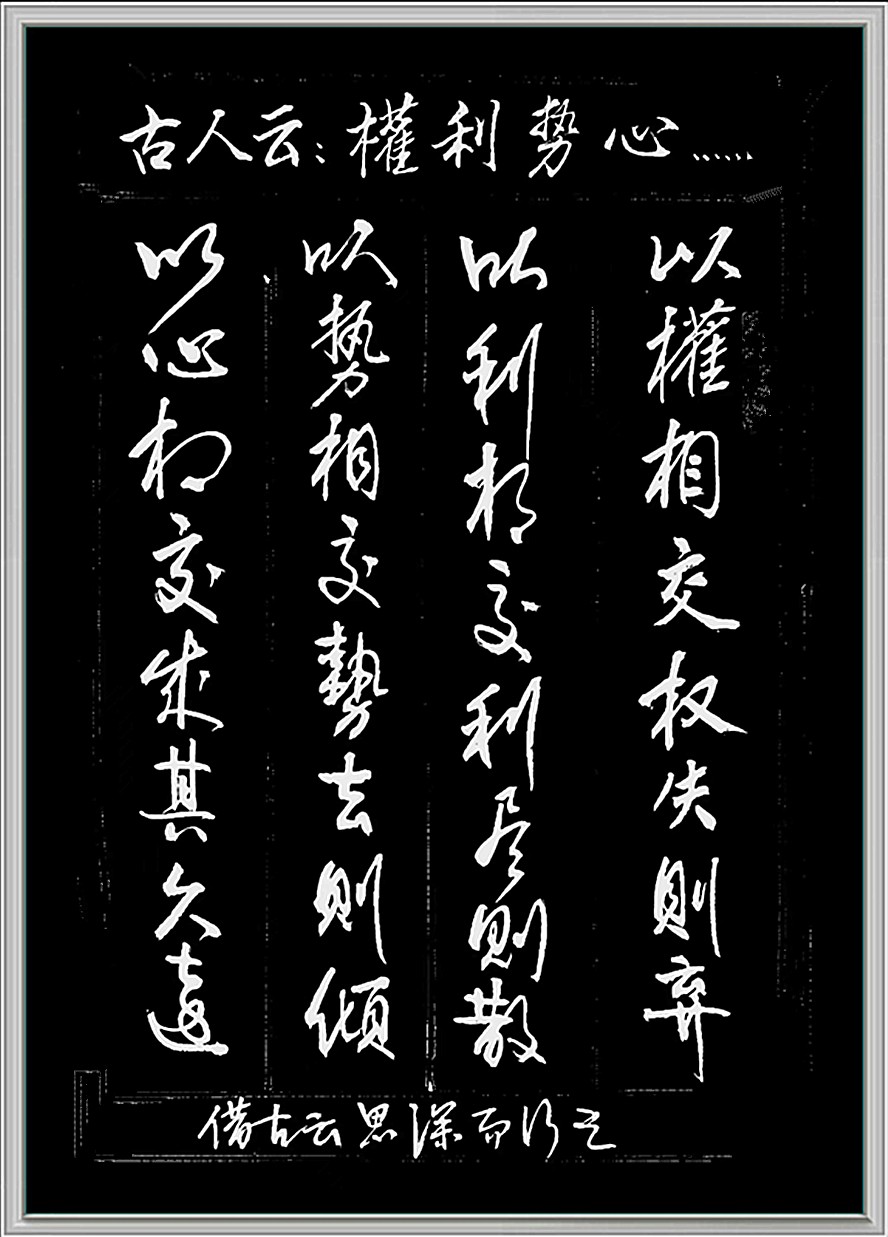 古人云：權利勢心……
以權相交权失則弃
以利相交利尽則散
以势相交勢去則傾
以心相交成其久遠
借古云思深而行之